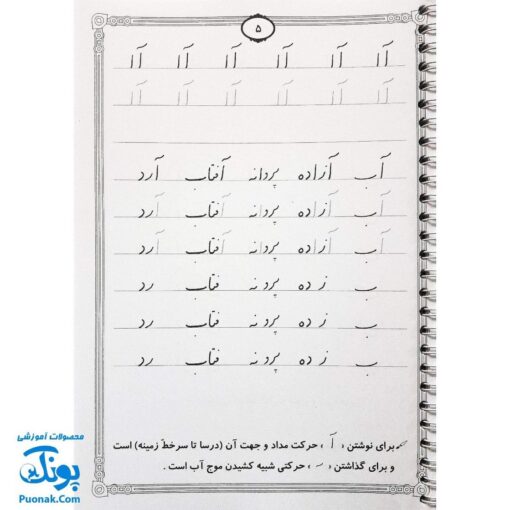 ۵
آا آا آا آا آا آا
آا آا آا آا آا آا
آب آزاده پروانه آفتاب آرد
آب آزاده پروانه آفتاب آرد
آب آزاده پروانه آفتاب آرد
ب ز ده پرو نه فتاب رد
ب ز ده پرو نه فتاب رد
ب ز ده پرو نه فتاب رد
برای نوشتن « آ » حرکت مداد و جهت آن (درسا تا سرخطّ زمینه) است
و برای گذاشتن « ~ » حرکتی شبیه کشیدن موج آب است .
محصولات آموزشی
پونک
Puonak.Com